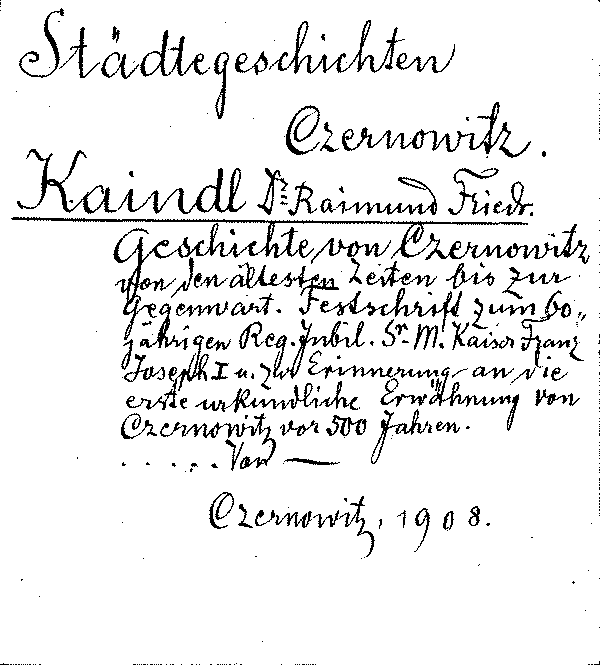 Städtegeschichten
Czernowitz.
Kaindl Dr. Raimund Friedr.
Geschichte von Czernowitz
von den ältesten Zeiten bis zur
Gegenwart. Festschrift zum 60„
jährigen Reg. Jubil. Sr. M. Kaiser Franz
Joseph I u. zur Erinnerung an die
erste urkundliche Erwähnung von
Czernowitz vor 500 Jahren.
. . . . . . Von —
Czernowitz, 1908.